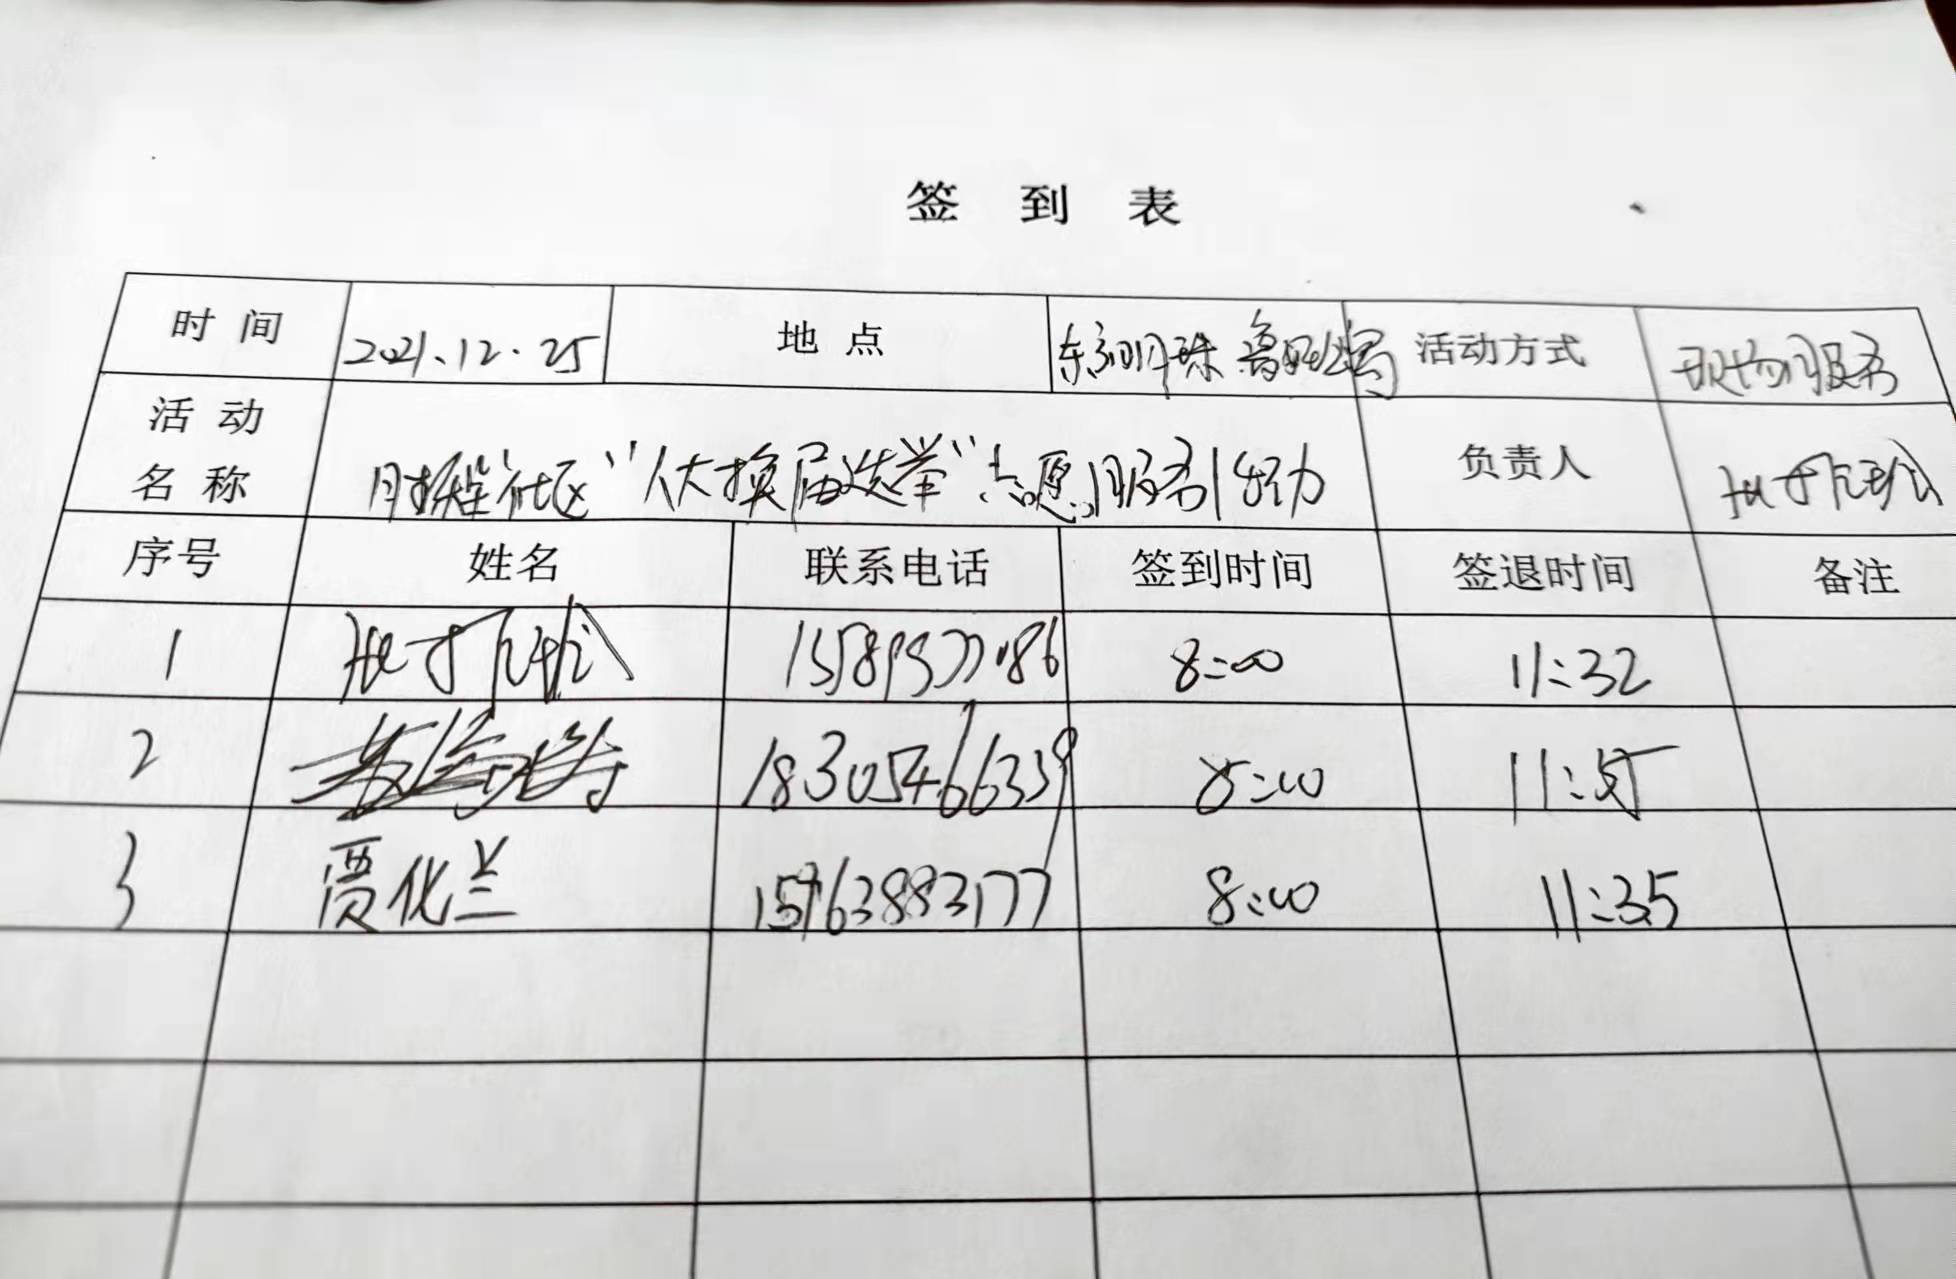 签 到 表
时 间 2021.12.25 地 点 东方明珠 活动方式 现场服务
活 动 名 称 社区“人大换届选举”志愿服务活动 负责人
序号 姓名 联系电话 签到时间 签退时间 备注
1 8:00 11:32
2 18305466339 8:00 11:35
3 贾化兰 15963883177 8:00 11:35